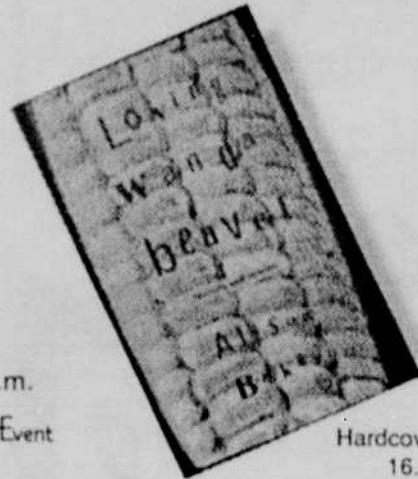 Loving
Wanda
beaver
Alison
Baker
.m.
Event
Hardcov
16.